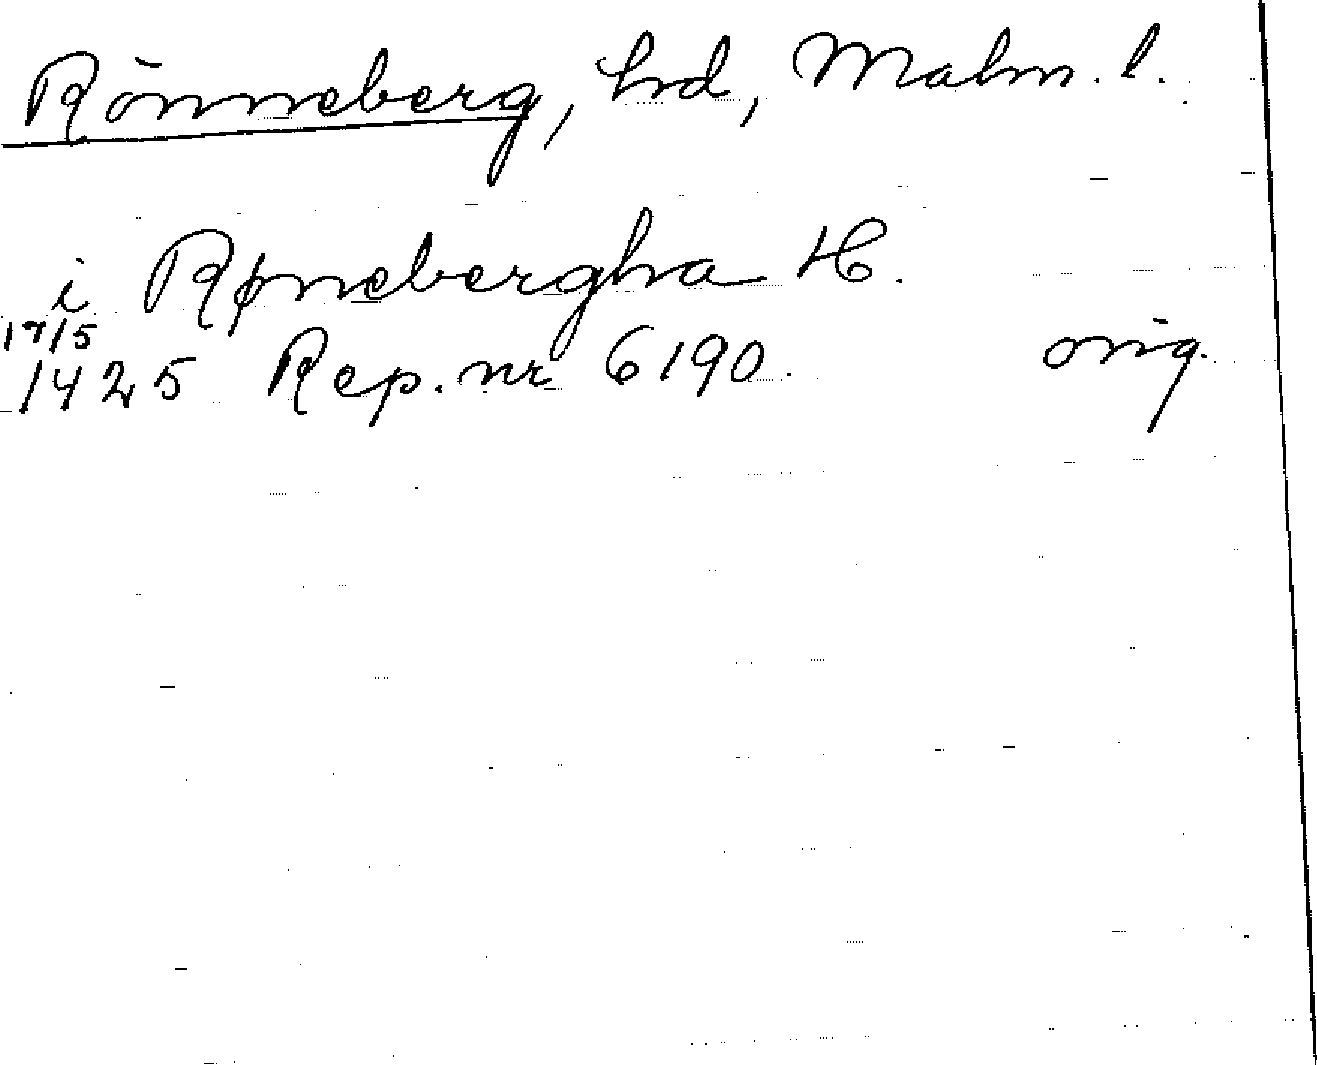 Rönneberg, hd, Malm. l.
i Rønebergha H.
17/5
1425 Rep. nr 6190. orig.